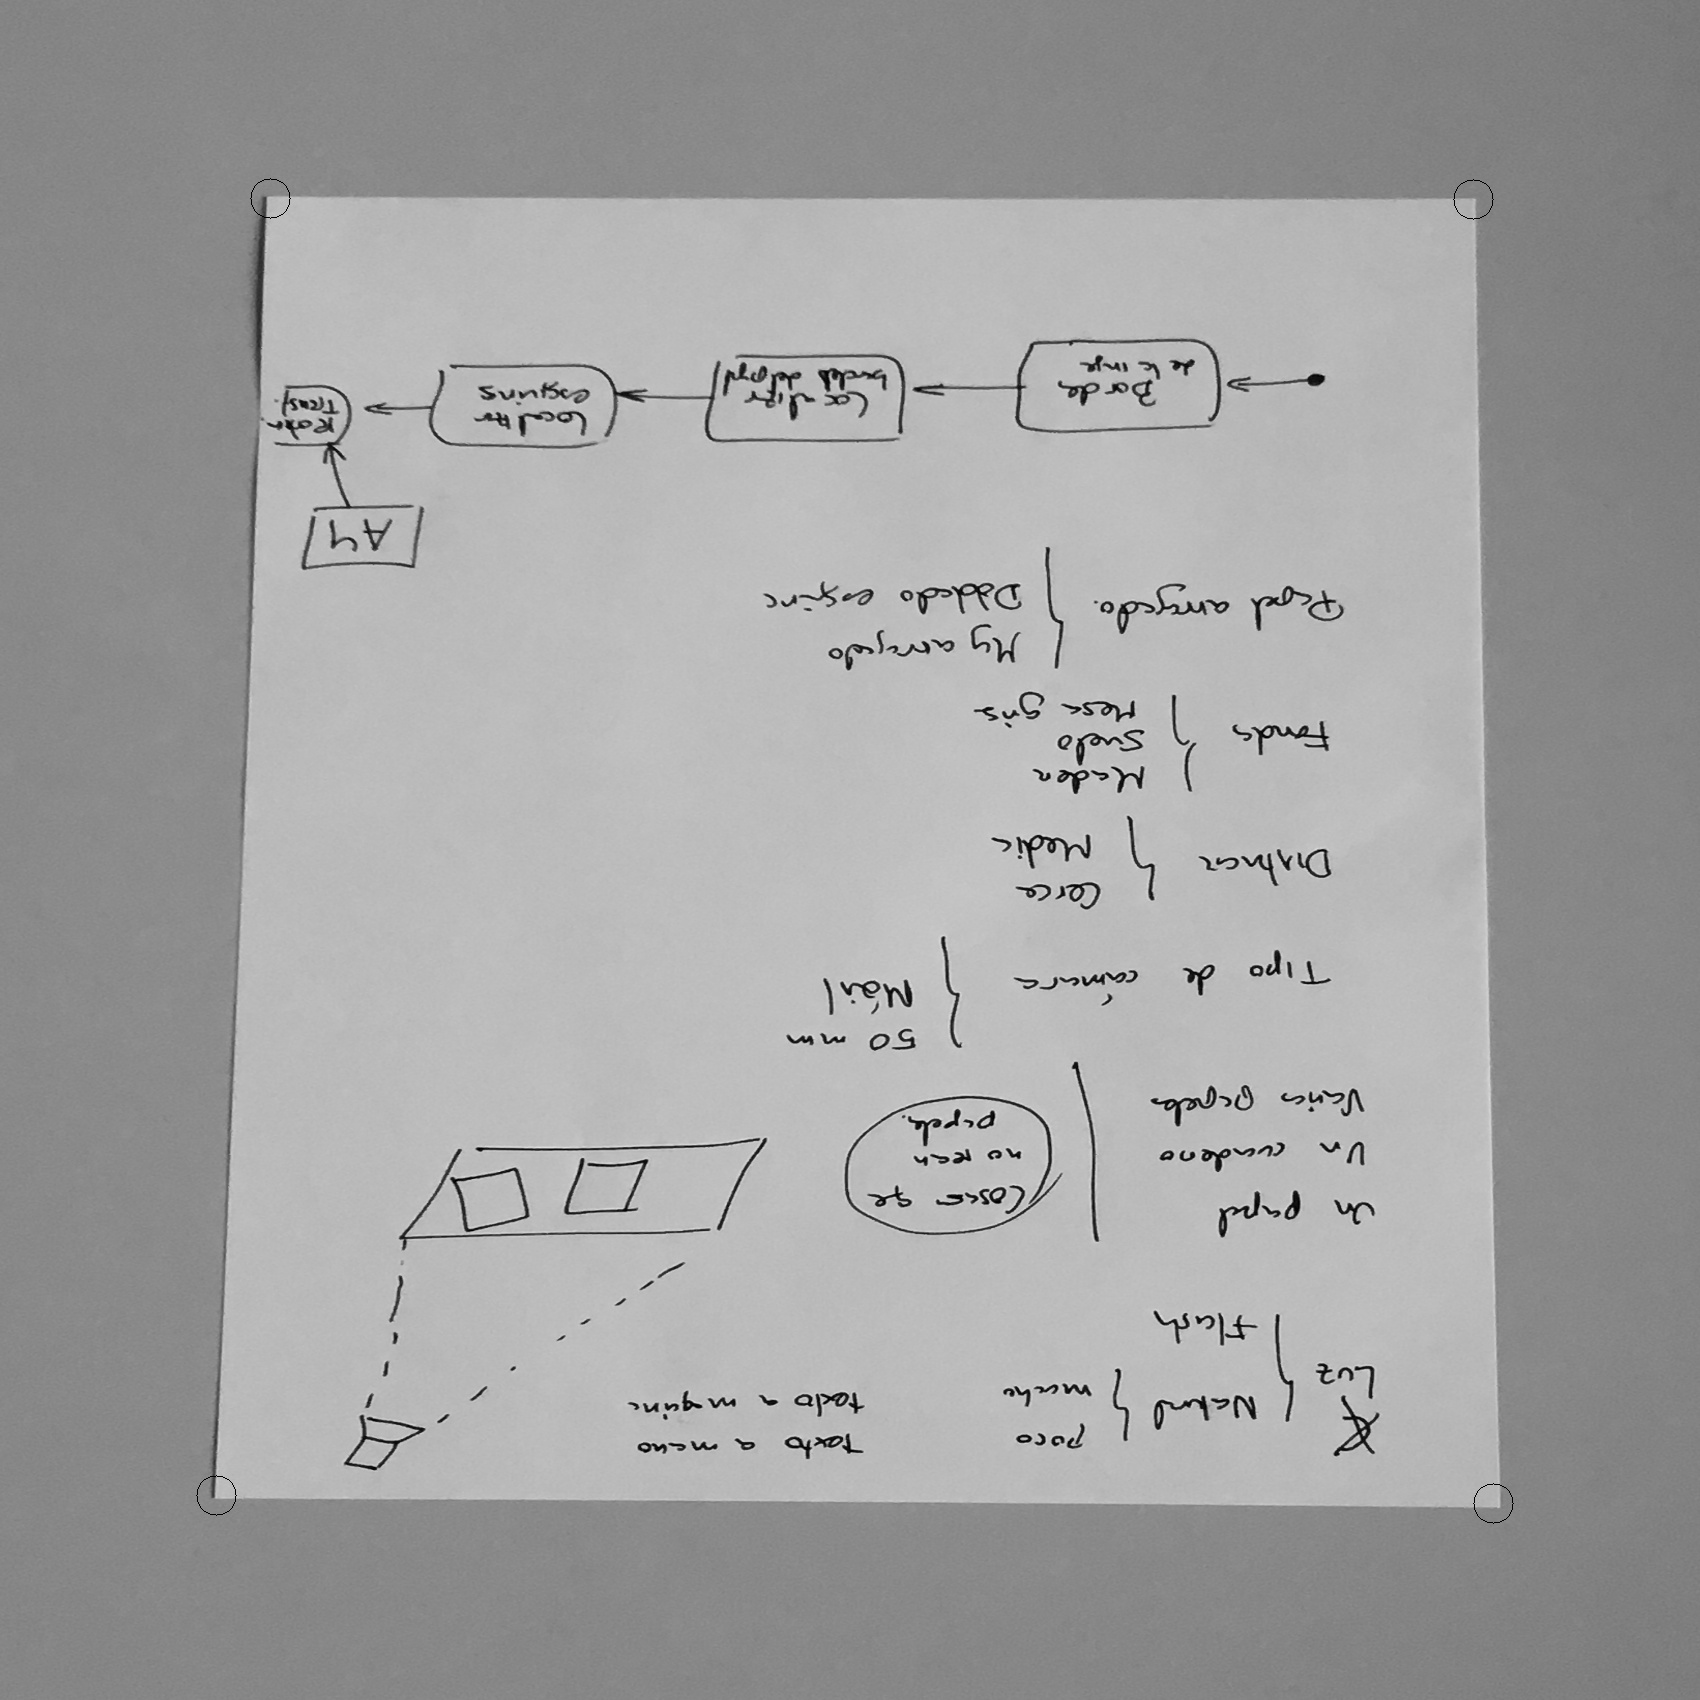 Luz
Natural
poco
mucho
Flash
texto a mano
texto a máquina
Un papel
Un cuaderno
Varios papeles
Cosas que
no sean
papeles.
Tipo de cámara
50 mm
Móvil
Distancia
Cerca
Media
Fondo
Madera
Suelo
Mesa gris
Papel arrugado.
Muy arrugado
Doblado esquina
A4
Bordes
de la
Localizar
bordes del papel
Localizar
esquinas
Transf.